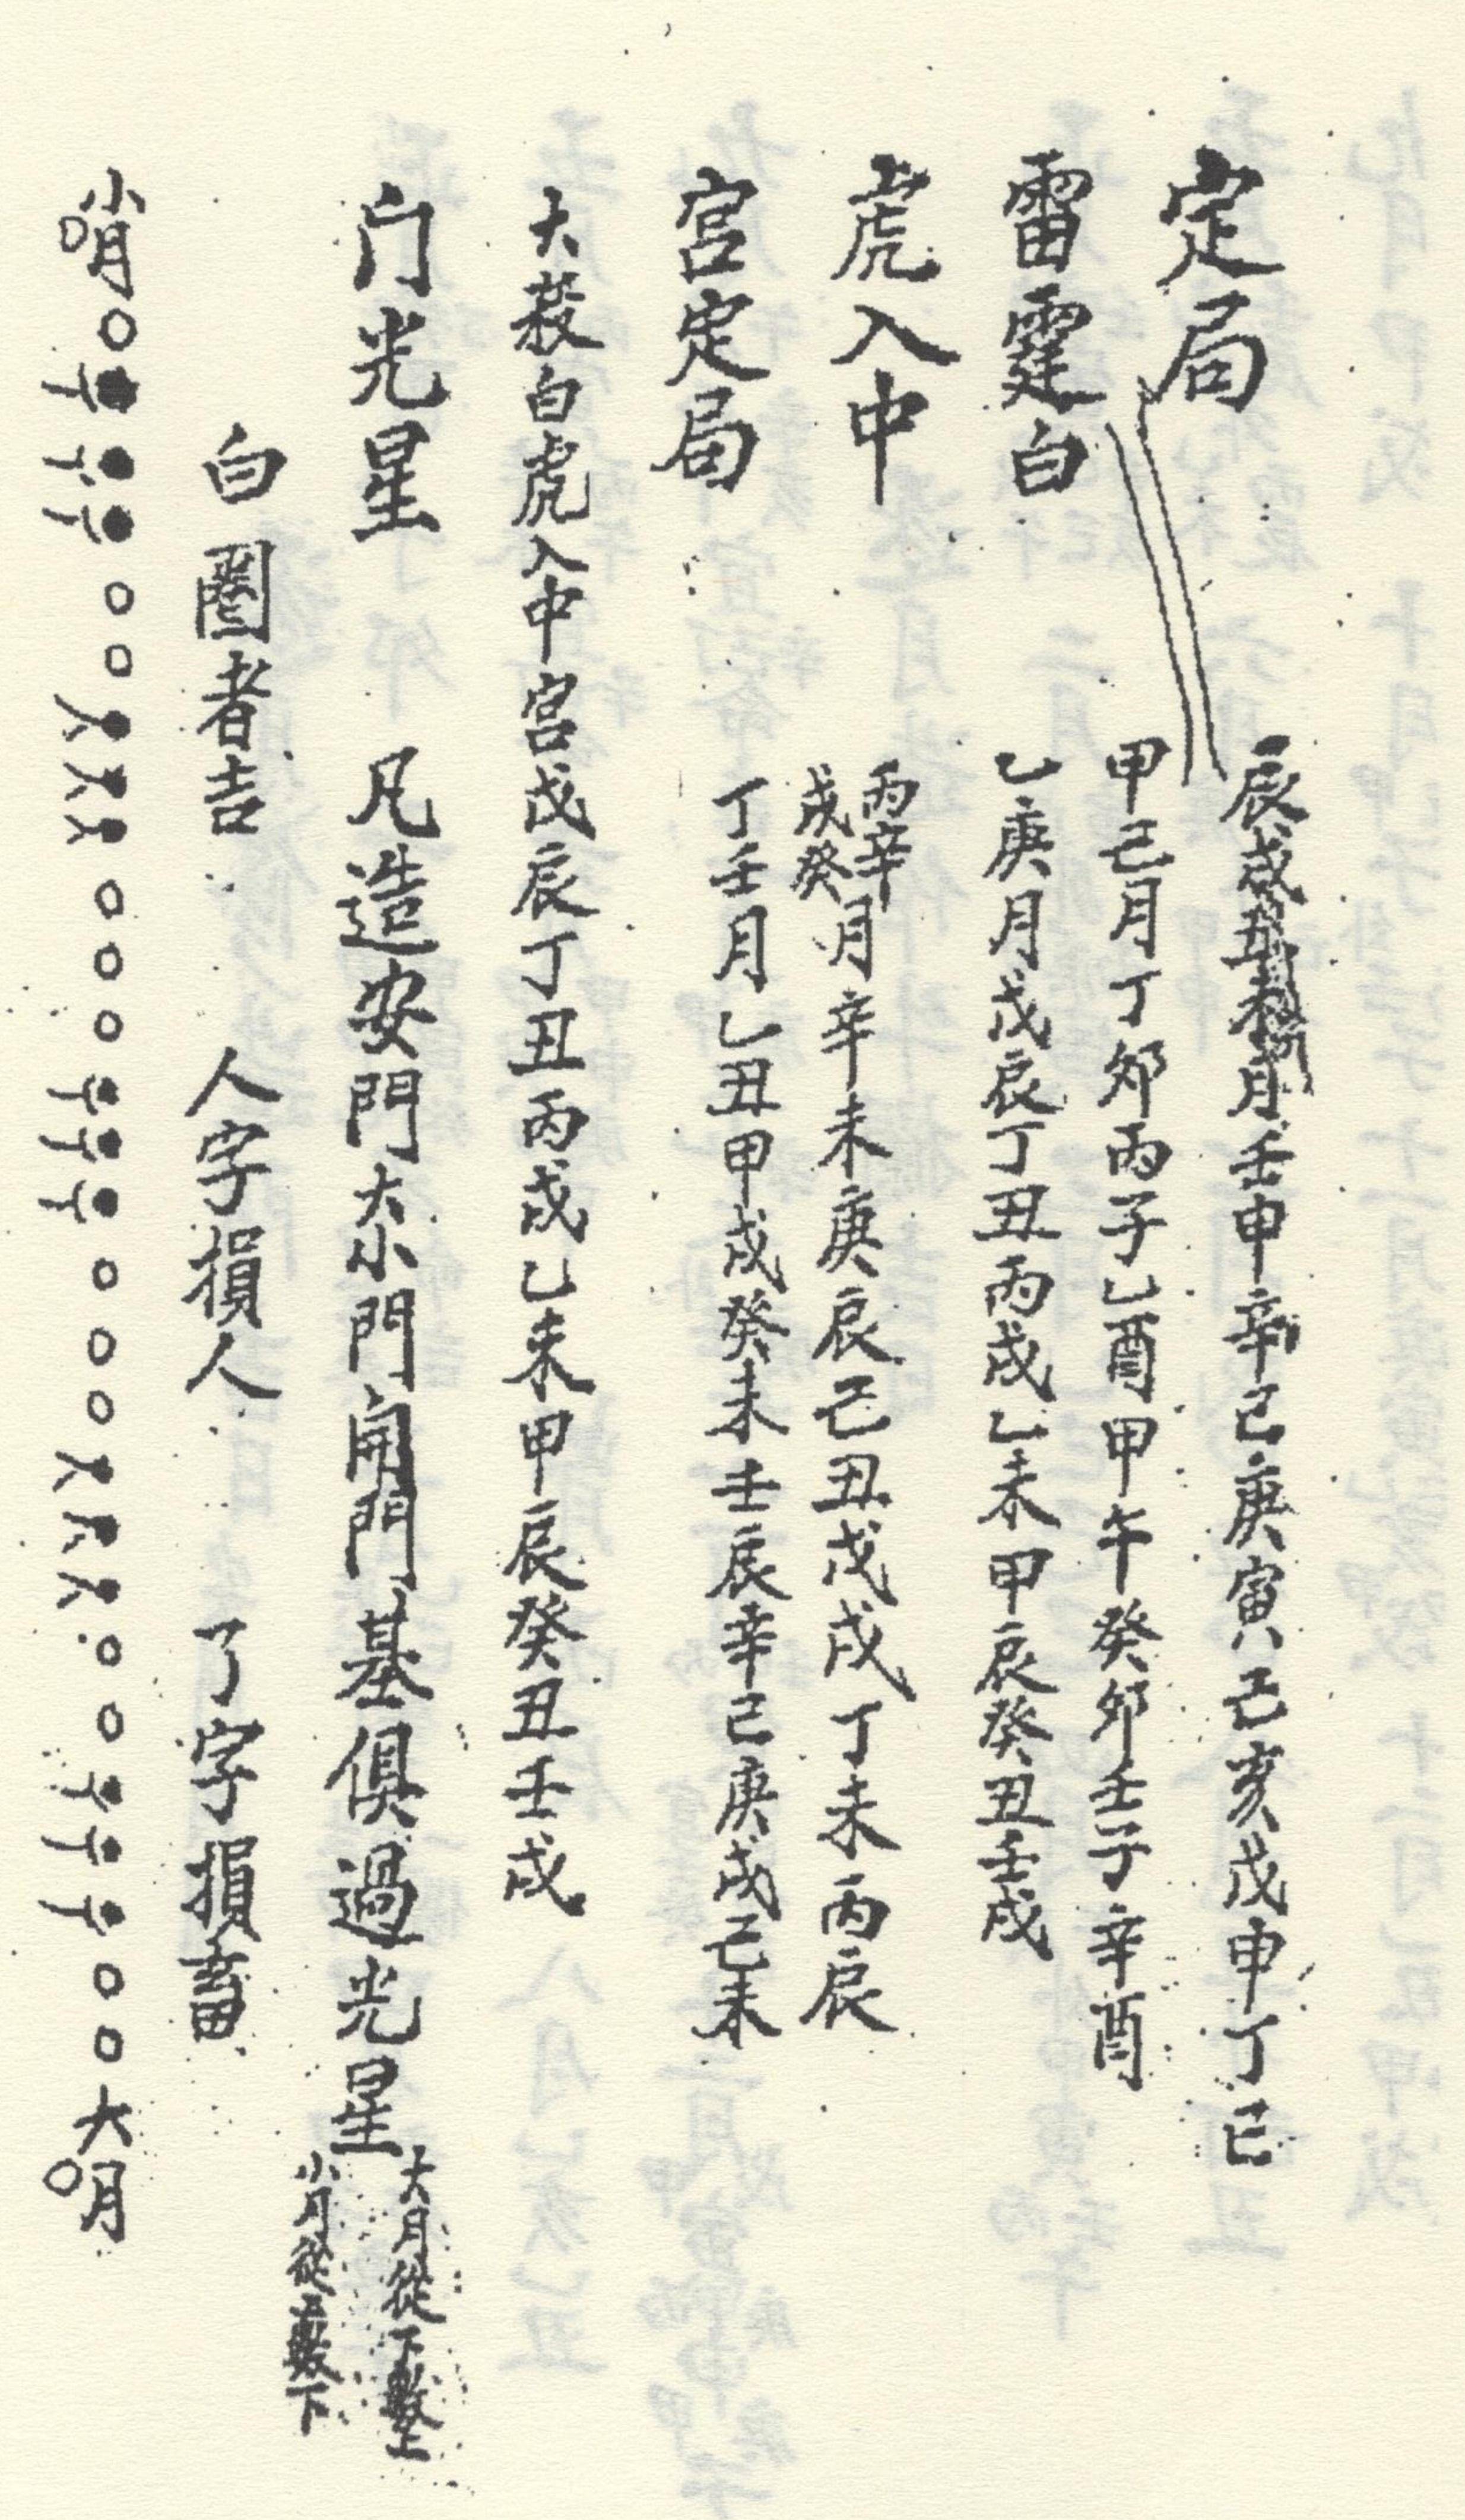 定局
辰戌丑未月壬申辛巳庚寅己亥戊申丁巳
甲己月丁卯丙子乙酉甲午癸卯壬子辛酉
雷霆白
乙庚月戊辰丁丑丙戌乙未甲辰癸丑壬戌
虎入中
丙辛
戊癸
月辛未庚辰己丑戊戌丁未丙辰
宮定局
丁壬月乙丑甲戌癸未壬辰辛巳庚戌己未
大殺白虎入中宮戊辰丁丑丙戌乙未甲辰癸丑壬戌
门光星
凡造安門大小門窗門基俱過光星
大月從下數上
小月從上數下
白圈者吉 人字損人 了字損畜
小月
大月